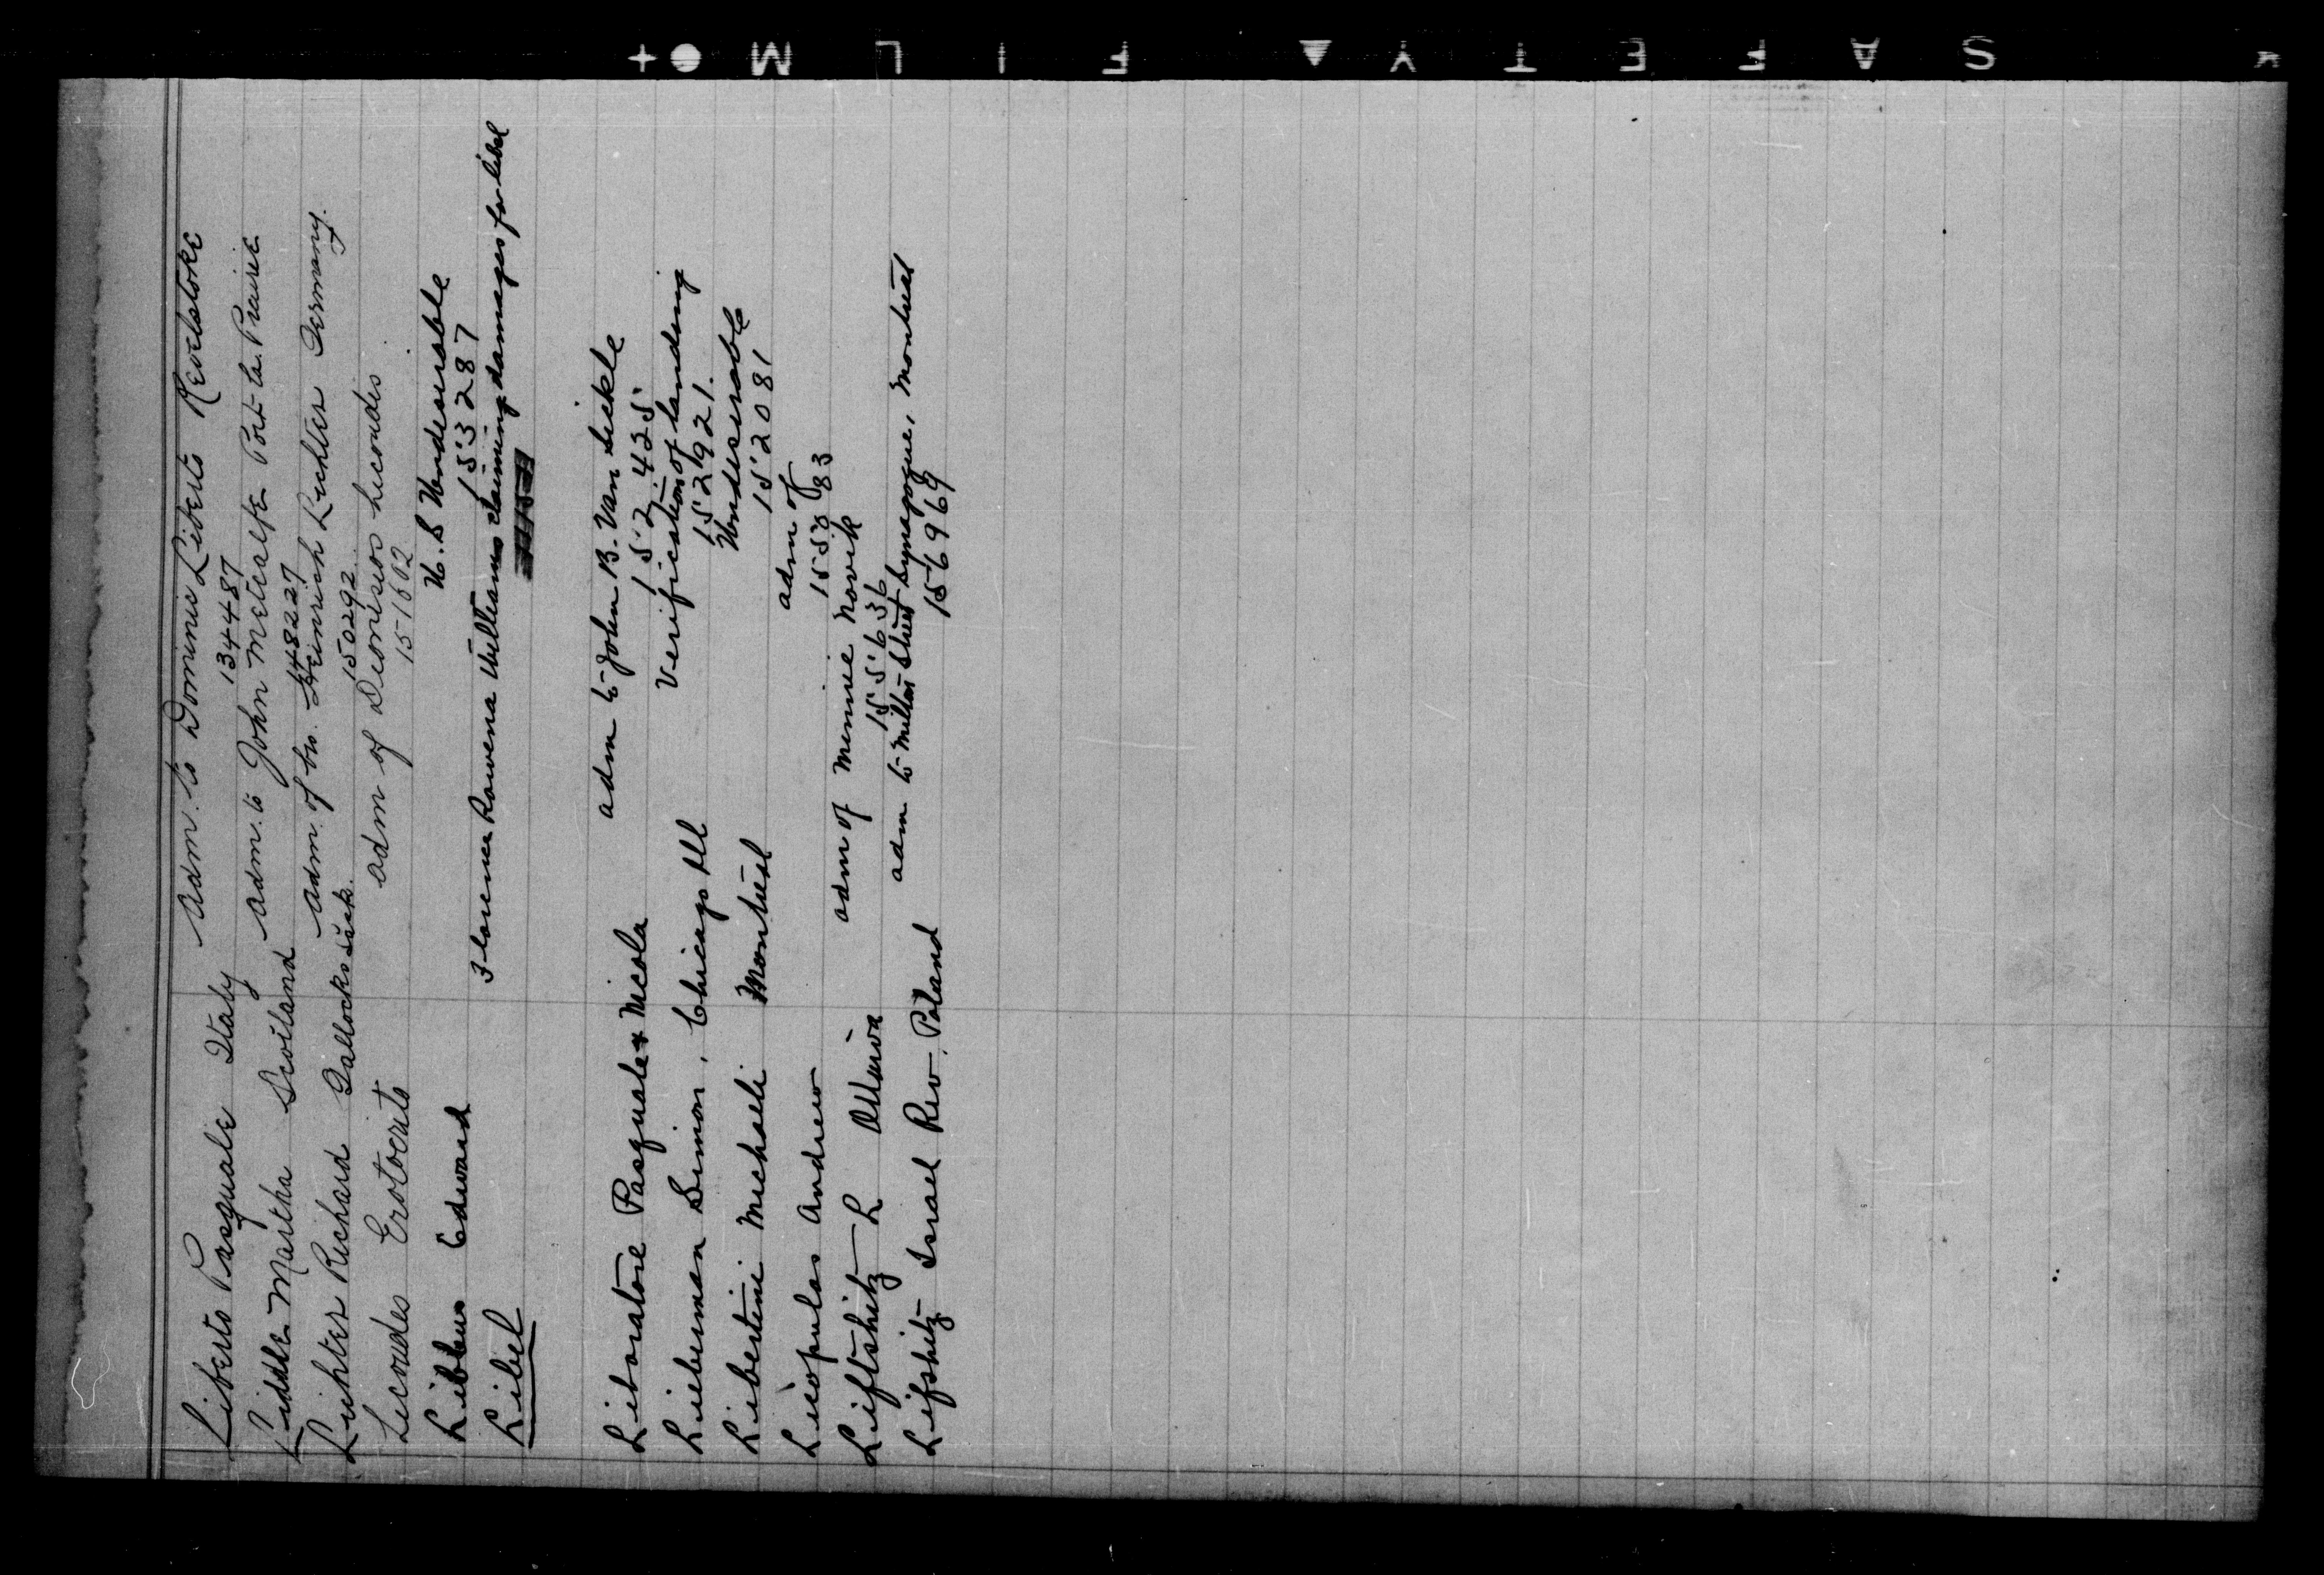 Liberto Pasquale Italy adm. to Dominic Liberto Revelstoke
134487
Liddle Martha Scotland adm. to John Metcalfe Port la Prairie
148227
Lichter Richard Tallocks Sask. adm. of bro. Heinrich Lichter Germany.
150292
Licoudes Erotocrito adm of Dionisios Licoudis
151602
Libbus Edward U.S Undesirable
153287
Libel Florence Rowena Williams claiming damages for libel
Liboratore Pasquale & Nicola adm to John B. Van Sickle
152425
Lieberman Simon, Chicago Ill Verification of landing
152921.
Libertini Michaeli Montreal Undesirable
152081
Licopulos Andrew adm of
155883
Liftshitz L Ottawa adm of Minnie Novik
155636
Lifshitz Israel Rev. Poland adm to Milton Street Synagogue, Montreal
156969
SAFETY FILM